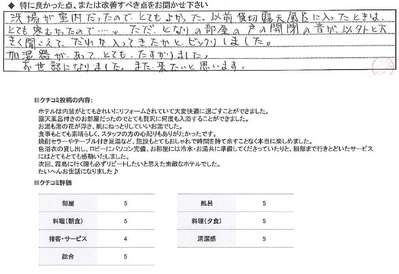 ◆ 特に良かった点、または改善すべき点をお聞かせ下さい
洗い場が室内だったのでとてもよかった。以前貸切露天風呂に入ったときは、
とても寒かったので…。ただ、となりの部屋の戸の開閉の音が以外と大
きく聞こえて、だれか入ってきたかと、ビックリしました。
加湿器があって、とても、たすかりました。
お世話になりました。また、来たいと思います。
※クチコミ投稿の内容:
ホテルは内装がとてもきれいにリフォームされていて大変快適に過ごすことができました。
露天薬品付きのお部屋だったのでとても贅沢に何度も入浴することができました。
お湯も湯の花が浮き、肌にねっとりしていいお湯でした。
食事もとても素晴らしく、スタッフの方の心配りもありがたかったです。
焼酎セラーやテーブル付き足湯など、施設もとてもおしゃれで時間を持て余すことなく本当に楽しめました。
色浴衣の貸し出し、ロビーにパソコン完備、お部屋には冷水・お湯共に準備してくださっていたりと、細部まで行きとどいたサービス
にはとてもとても感動いたしました。
次回、霧島に行く際も必ずリピートしたいと思えた素敵なホテルでした。
たいへんお世話になりました♪
※クチコミ評価
部屋 5 風呂 5
料理(朝食) 5 料理(夕食) 5
接客・サービス 4 清潔感 5
総合 5